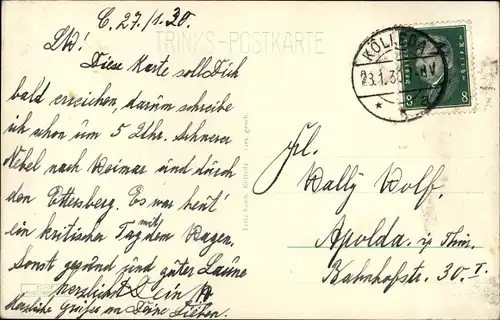 C. 27./1.30.
TRINKS-POSTKARTE
LW! Diese Karte soll Dich
bald erreichen, darum schreibe
ich schon um 5 Uhr. Schwerer
Nebel nach Weimar und durch
den Ettersberg. Es war heut'
ein kritischer Tag mit dem Wagen.
Sonst gesund und guter Laune
herzlichst Dein
Herzliche Grüße an Deine Lieben.
KÖLLEDA
28.1.30
8
8
a
Frl.
Wally Wolf.
Apolda. i/ Thür.
Bahnhofstr. 30. I.